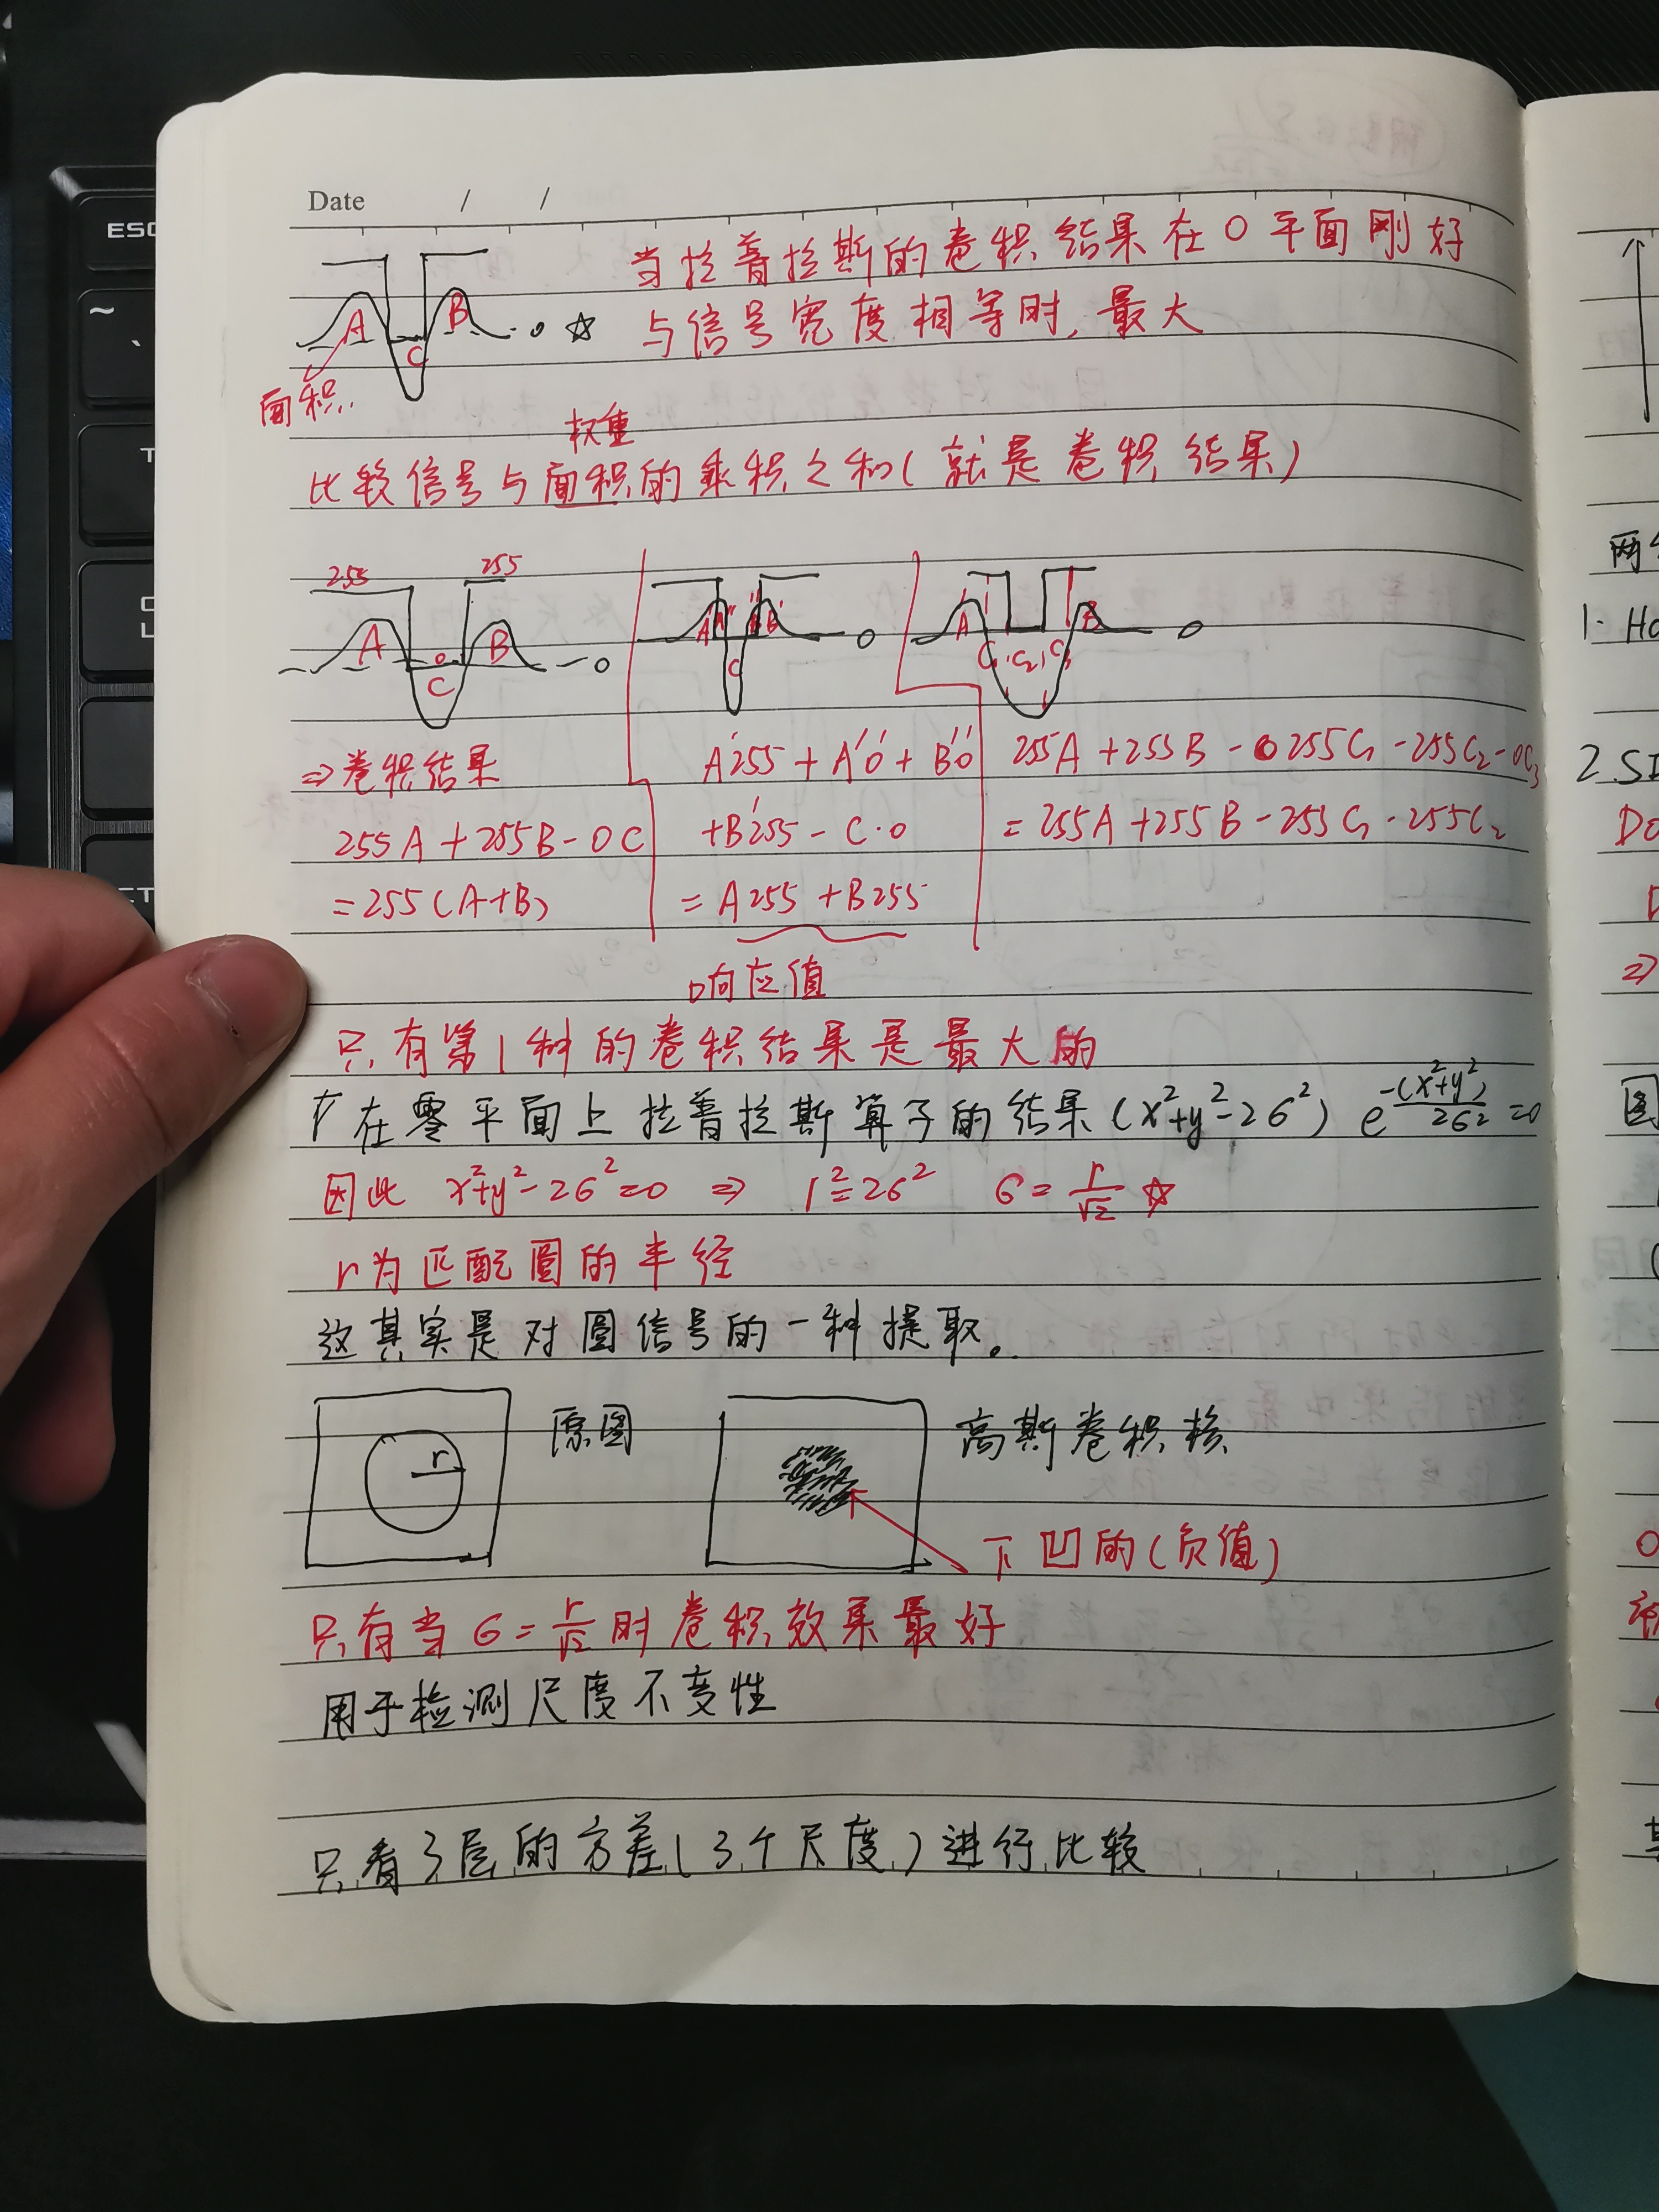 Date / /
当拉普拉斯的卷积结果在0平面刚好
与信号宽度相等时,最大
A B C 0 ☆
面积
权重
比较信号与面积的乘积之和(就是卷积结果)
255 255
A 0 B C 0
A' A'' B'' B' C 0
A B C₁ C₂ C₃ 0
⇒卷积结果
255A+255B-0C
=255(A+B)
A'255+A''0+B''0
+B'255-C·0
=A255+B255
响应值
255A+255B-0255C₁-255C₂-0C₃
=255A+255B-255C₁-255C₂
只有第1种的卷积结果是最大的
在零平面上拉普拉斯算子的结果(x²+y²-2σ²) e^(-(x²+y²)/2σ²)=0
因此 x²+y²-2σ²=0 ⇒ r²=2σ² σ=r/√2 ☆
r为匹配圆的半径
这其实是对圆信号的一种提取。
r 原图
高斯卷积核
下凹的(负值)
只有当σ=r/√2时卷积效果最好
用于检测尺度不变性
只看3层的方差(3个尺度)进行比较
ESC
~
1. Ho
2 SI
⇒